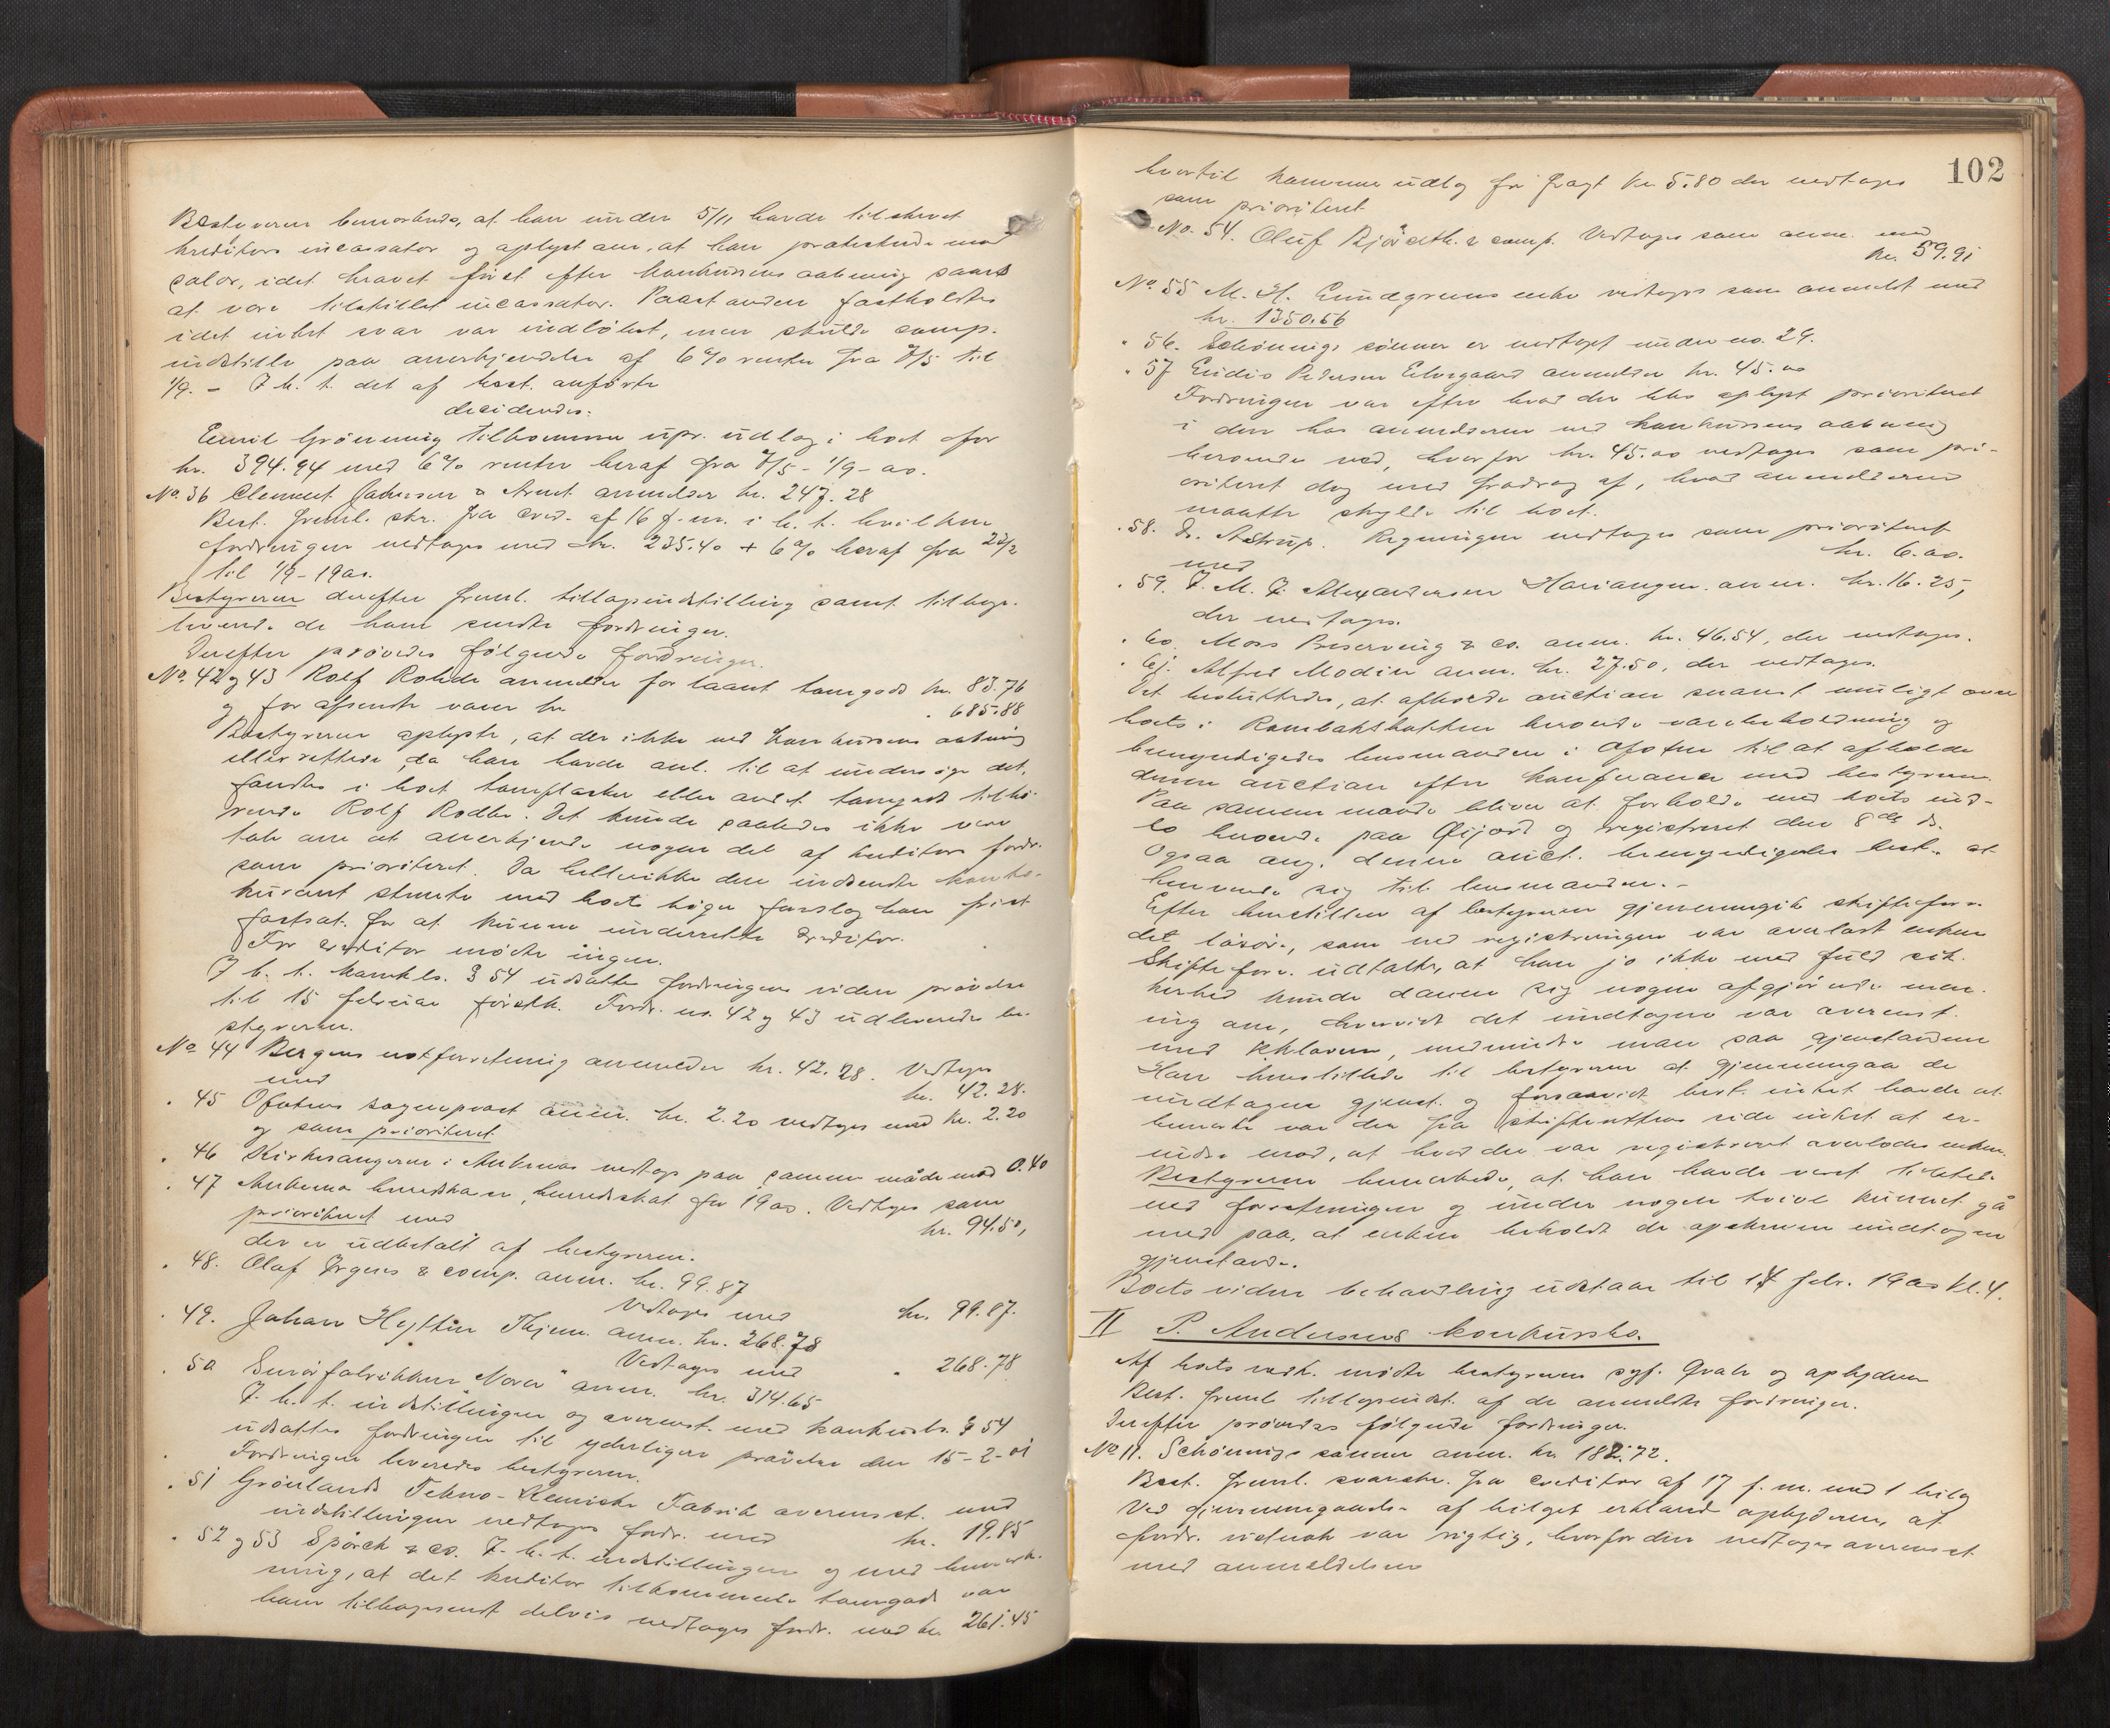 Bestyreren bemærkede, at han under 5/11 havde tilskrevet
kreditors incassator og oplyst om, at han protesterede mod
salær, idet kravet først efter konkursens aabning saaes
at være tilstillet incassator. Paastanden fastholdtes
idet intet svar var indløbet, men skulde
indstille paa anerkjendelse af 6% renter fra 7/5 til
1/9. – I h. t. det af best. anførte
decideredes:
Emil Grönning tilkommer upr. udlæg i boet for
kr. 394.94 med 6% renter heraf fra 7/5 – 1/9 – 00.
No. 36 Clement Johnsen & Arnt anmelder kr. 247.28
Best. freml. skr. fra cred. af 16 f. m. i h. t. hvilken
fordringen vedtages med kr. 235.40 + 6% heraf fra 23/2
til 1/9 – 1900.
Bestyreren derefter freml. tillægsindstilling samt tilbage-
leverede de ham sendte fordringer.
Derefter prøvedes følgende fordringer.
No. 42 og 43 Rolf Rohde anmelder for laant tomgods kr. 83.76
og for afsendte varer kr. 685.88
Bestyreren oplyste, at der ikke ved konkursens aabning
eller rettere, da han havde anl. til at undersøge det,
fandtes i boet tomflasker eller andet tomgods tilhø-
rende Rolf Rodhe. Det kunde saaledes ikke være
tale om at anerkjende nogen del af kreditors fordr.
som prioriteret. Da hellerikke den indsendte konto-
kurant stemte med boets bøger foreslog han frist
fastsat for at kunne underrette kreditor.
For kreditor mødte ingen.
I h. t. konkls. § 54 udsattes fordringens videre prøvelse
til 15 februar førstk. Fordr. no. 42 og 43 udleveredes be-
styreren.
No. 44 Bergens notforretning anmelder kr. 42.28. Vedtages
med kr. 42.28.
" 45 Ofotens sogneprest anm. kr. 2.20 vedtages med kr. 2.20
og som prioriteret
" 46 Kirkesangeren i Ankenes vedtages paa samme måde med 0.40
" 47 Ankenes herredskasse, herredsskat for 1900. Vedtages som
prioriteret med kr. 94.50,
der er udbetalt af bestyreren.
" 48. Olaf Ørgens & comp. anm. kr. 99.87
Vedtages med kr. 99.87.
" 49. Johan Hyltin Thjem. anm. kr. 268.78
Vedtages med " 268.78
" 50 Smørfabrikken "Nora" anm. kr. 314.65
I h. t. indstillingen og overenst. med konkursls. § 54
udsattes fordringen til yderligere prøvelse den 15-2-01
Fordringen leveredes bestyreren.
" 51 Grönlands Tekno-Kemiske Fabrik overensst. med
indstillingen vedtages fordr. med kr. 19.85
" 52 og 53 Spörck & co. I h. t. indstillingen og med bemærk-
ning, at det kreditor tilkommende tomgods var
ham tilbagesendt delvis vedtages fordr. med kr. 261.45
102
hvortil kommer udlæg for fragt kr. 5.80 der vedtages
som prioriteret
No. 54. Oluf Bjõrseth. & comp. Vedtages som anm. med
kr. 59.91
No. 55 M. H. Lundgreens enke vedtages som anmeldt med
kr. 1350.56
" 56. Schønnings sønner er vedtaget under no. 29.
" 57 Eidis Pedersen Elvegaard anmelder kr. 45.00
Fordringen var efter hvad der blev oplyst prioriteret
i den hos anmelderen ved konkursens aabning
beroende ved, hvorfor kr. 45.00 vedtages som pri-
oriteret dog med fradrag af, hvad anmelderen
maatte skylde til boet.
" 58. Dr. Astrup. Regningen vedtages som prioriteret
med kr. 6.00.
" 59. J. M. J. Alexandersen Harjangen anm. kr. 16.25,
der vedtages.
" 60. Moss Preserving & co. anm. kr. 46.54, der vedtages.
" 61. Alfred Modin anm. kr. 27.50, der vedtages.
Det besluttedes, at afholde auction snarest muligt over
boets i Rombaksbotten beroende varebeholdning og
bemyndigedes lensmanden i Ofoten til at afholde
denne auction efter konferance med bestyreren.
Paa samme maade bliver at forholde med boets ind-
bo beroende paa Øijord og registreret den 8de ds.
Ogsaa ang. denne auct. bemyndigedes best. at
henvende sig til lensmanden. –
Efter henstillen af bestyreren gjennemgik skifteforv.
det løsøre, som ved registreringen var overladt enken
Skifteforv. udtalte, at han jo ikke med fuld sik-
kerhed kunde danne sig nogen afgjørende men-
ing om, hvorvidt det undtagne var overenst.
med kkloven, medmindre man saa gjenstandene
Han henstillede til bestyreren at gjennemgaa de
undtagne gjenst. og forsaavidt best. intet havde at
bemerke var der fra skifterettens side intet at er-
indre mod, at hvad der var registreret overlodes enken.
Bestyreren bemærkede, at han havde været tilstede
ved forretningen og under nogen tvivl kunnet gå
med paa, at enken beholdt de opskrevne undtagne
gjenstande.
Boets videre behandling udstaar til 14 febr. 1900 kl. 4.
II P. Andersens konkursbo.
Af boets vedk. mødte bestyreren sgf. Grah og opbyderen
Best. freml. tillægsindst. af de anmeldte fordringer.
Derefter prøvedes følgende fordringer.
No. 11. Schønnings sønner anm. kr. 182.72.
Best. freml. svarskr. fra creditor af 17 f. m. med 1 bilag
Ved gjennemgaaelse af bilaget erklærede opbyderen, at
fordr. vistnok var rigtig, hvorfor den vedtages overensst.
med anmeldelsen